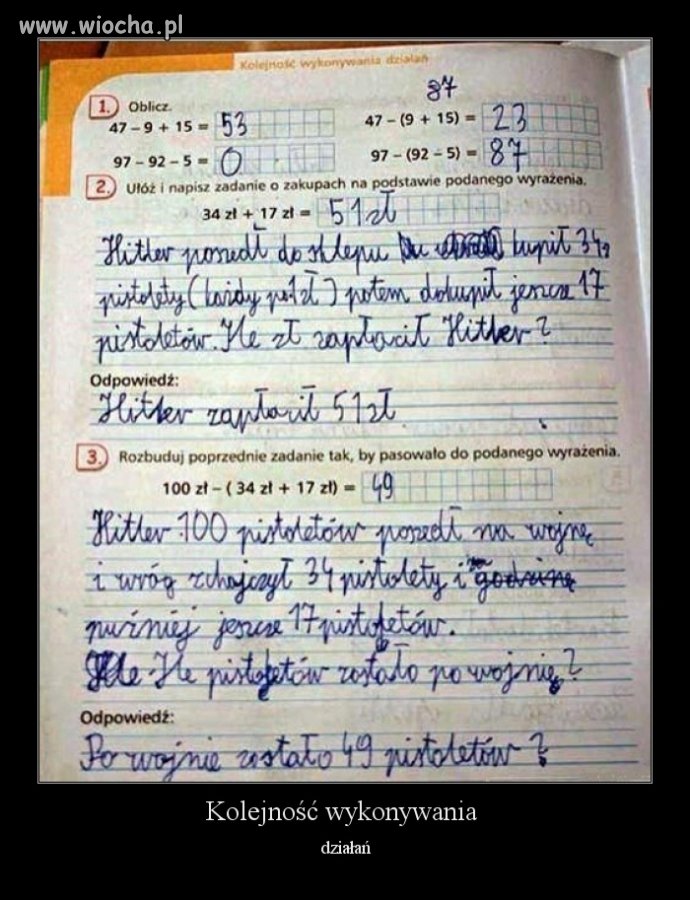 www.wiocha.pl
Kolejność wykonywania działań
87
1. Oblicz.
47 – 9 + 15 = 53 47 – (9 + 15) = 23
97 – 92 – 5 = 0 97 – (92 – 5) = 87
2. Ułóż i napisz zadanie o zakupach na podstawie podanego wyrażenia.
34 zł + 17 zł = 51 zł
Hitler poszedł do sklepu kupił 34
pistolety (każdy po 1 zł) potem dokupił jeszcze 17
pistoletów. Ile zł zapłacił Hitler?
Odpowiedź:
Hitler zapłacił 51 zł.
3. Rozbuduj poprzednie zadanie tak, by pasowało do podanego wyrażenia.
100 zł – ( 34 zł + 17 zł) = 49
Hitler 100 pistoletów poszedł na wojnę
i wróg zhajczył 34 pistolety i godzinę
puźniej jeszcze 17 pistoletów.
Ile pistoletów zostało po wojnie?
Odpowiedź:
Po wojnie zostało 49 pistoletów?
Kolejność wykonywania
działań